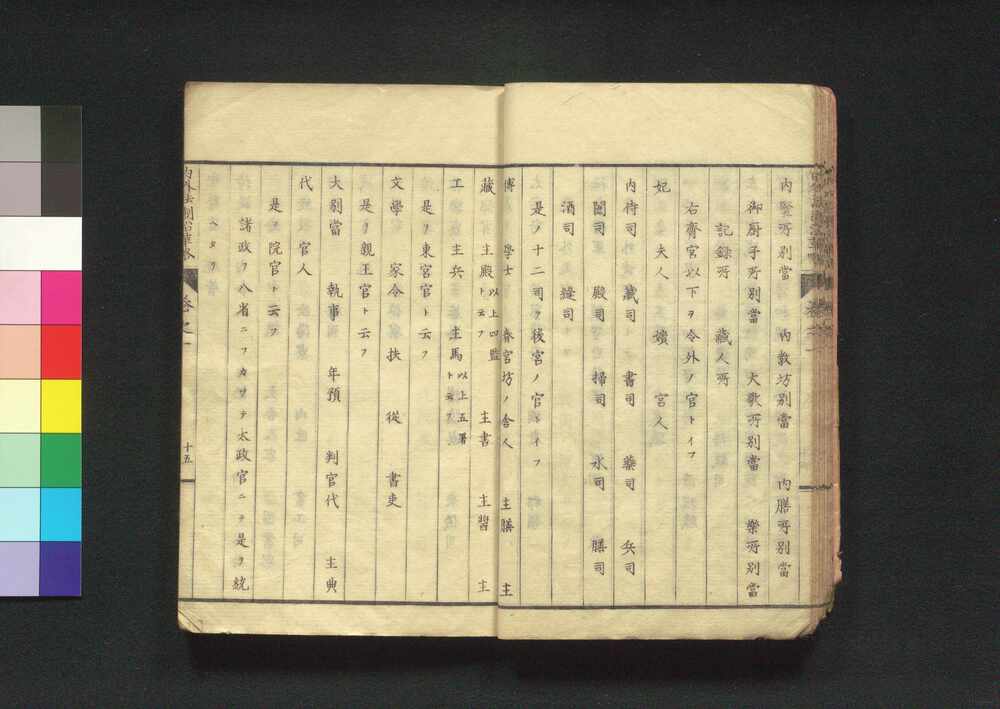 内竪所別當 内教坊別當 内膳所別當
御厨子所別當 大歌所別當 樂所別當
記録所 藏人所
右齊宮以下ヲ令外ノ官トイフ
妃 夫人 嬪 宮人
内侍司 藏司 書司 藥司 兵司
闈司 殿司 掃司 水司 膳司
酒司 縫司
是ノ十二司ヲ後宮ノ官トイフ
傅 學士 春宮坊ノ舎人 主膳 主
藏 主殿 以上四監ト云フ 主書 主習 主
工 主兵 主馬 以上五署ト云フ
是ヲ東宮官ト云フ
文學 家令 扶 從 書吏
是ヲ親王官ト云フ
大別當 執事 年預 判官代 主典
代 官人
是ヲ院官ト云フ
諸政ヲ八省ニワカサテ太政官ニテ是ヲ統
ヘタリ
内外法制沿革畧 卷之一 十五